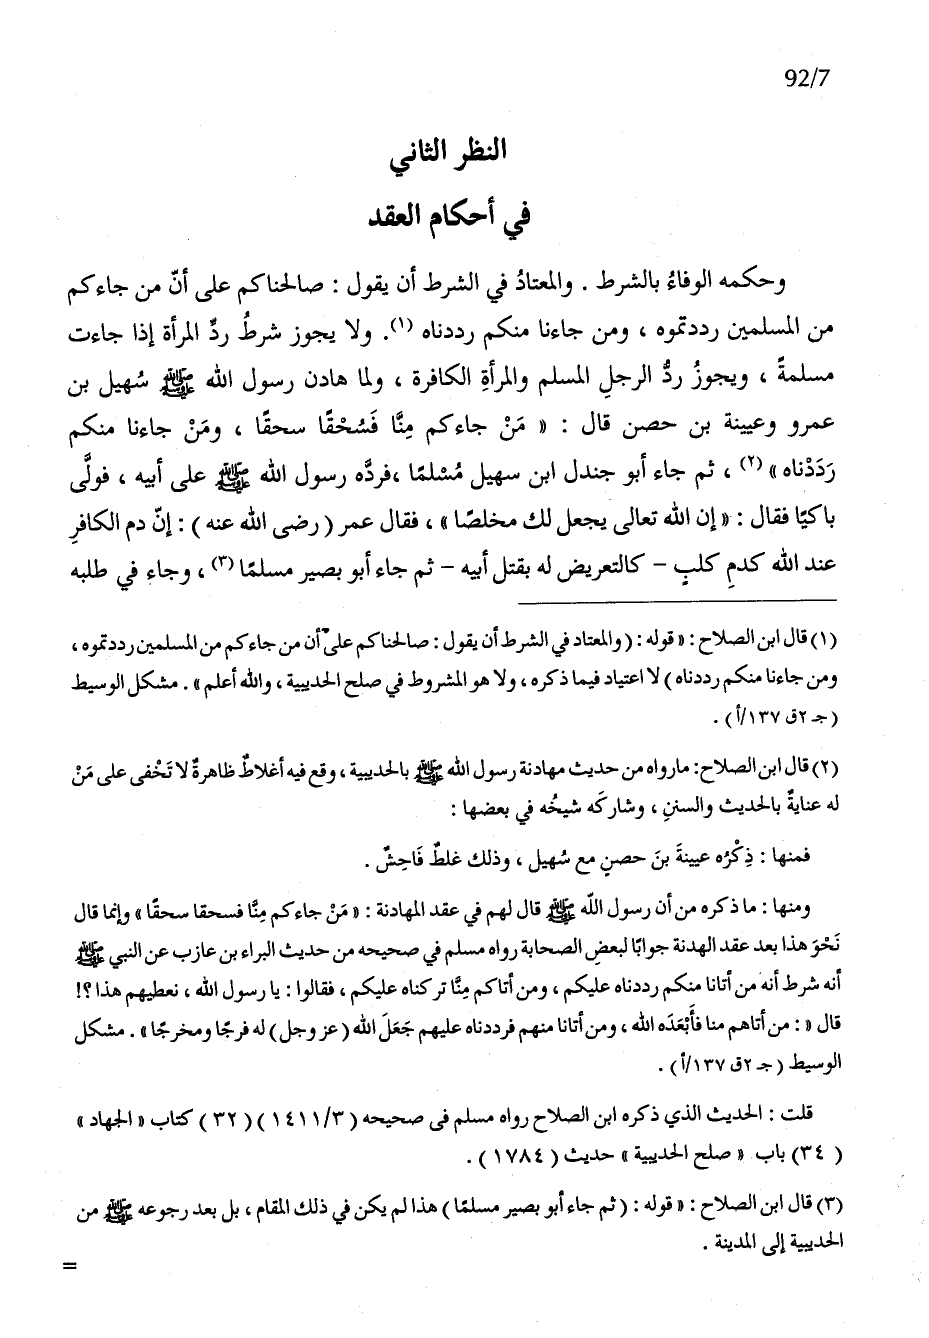 92/7
النظر الثاني
في أحكام العقد
وحكمه الوفاءُ بالشرط . والمعتادُ في الشرط أن يقول : صالحناكم على أنّ من جاءكم
من المسلمين رددتموه ، ومن جاءنا منكم رددناه (١). ولا يجوز شرطُ ردِّ المرأة إذا جاءت
مسلمةً ، ويجوزُ ردُّ الرجلِ المسلم والمرأةِ الكافرة ، ولما هادن رسول الله ﷺ سُهيل بن
عمرو وعيينة بن حصن قال : « مَنْ جاءكم مِنَّا فَسُحْقًا سحقًا ، ومَنْ جاءنا منكم
رَدَدْناه » (٢) ، ثم جاء أبو جندل ابن سهيل مُسْلمًا ،فردَّه رسول الله ﷺ على أبيه ، فولَّى
باكيًا فقال : « إن الله تعالى يجعل لك مخلصًا » ، فقال عمر ( رضى الله عنه ) : إنّ دم الكافرِ
عند الله كدمِ كلبٍ – كالتعريض له بقتل أبيه – ثم جاء أبو بصير مسلمًا (٣) ، وجاء في طلبه
(١) قال ابن الصلاح : « قوله : ( والمعتاد في الشرط أن يقول : صالحناكم على أن من جاءكم من المسلمين رددتموه ،
ومن جاءنا منكم رددناه ) لا اعتياد فيما ذكره ، ولا هو المشروط في صلح الحديبية ، والله أعلم » . مشكل الوسيط
( جـ ٢ق ١٣٧/أ ) .
(٢) قال ابن الصلاح: مارواه من حديث مهادنة رسول الله ﷺ بالحديبية ، وقع فيه أغلاطٌ ظاهرةٌ لا تَخْفى على مَنْ
له عنايةٌ بالحديث والسننِ ، وشاركَه شيخُه في بعضها :
فمنها : ذِكْرُه عيينةَ بنَ حصنٍ مع سُهيل ، وذلك غلطٌ فَاحِشٌ .
ومنها : ما ذكره من أن رسول اللّه ﷺ قال لهم في عقد المهادنة : « مَنْ جاءكم مِنَّا فسحقا سحقًا » وإنما قال
نَحْوَ هذا بعد عقد الهدنة جوابًا لبعضِ الصحابة رواه مسلم في صحيحه من حديث البراء بن عازب عن النبي ﷺ
أنه شرط أنه من أتانا منكم رددناه عليكم ، ومن أتاكم مِنَّا تركناه عليكم ، فقالوا : يا رسول الله ، نعطيهم هذا ؟!
قال « : من أتاهم منا فأَبْعَدَه الله ، ومن أتانا منهم فرددناه عليهم جَعَلَ الله ( عز وجل ) له فرجًا ومخرجًا » . مشكل
الوسيط ( جـ ٢ق ١٣٧/أ ) .
قلت : الحديث الذي ذكره ابن الصلاح رواه مسلم فى صحيحه ( ١٤١١/٣ ) ( ٣٢ ) كتاب « الجهاد »
( ٣٤) باب « صلح الحديبية » حديث ( ١٧٨٤ ) .
(٣) قال ابن الصلاح : « قوله : ( ثم جاء أبو بصير مسلمًا ) هذا لم يكن في ذلك المقام ، بل بعد رجوعه ﷺ من
الحديبية إلى المدينة .
=